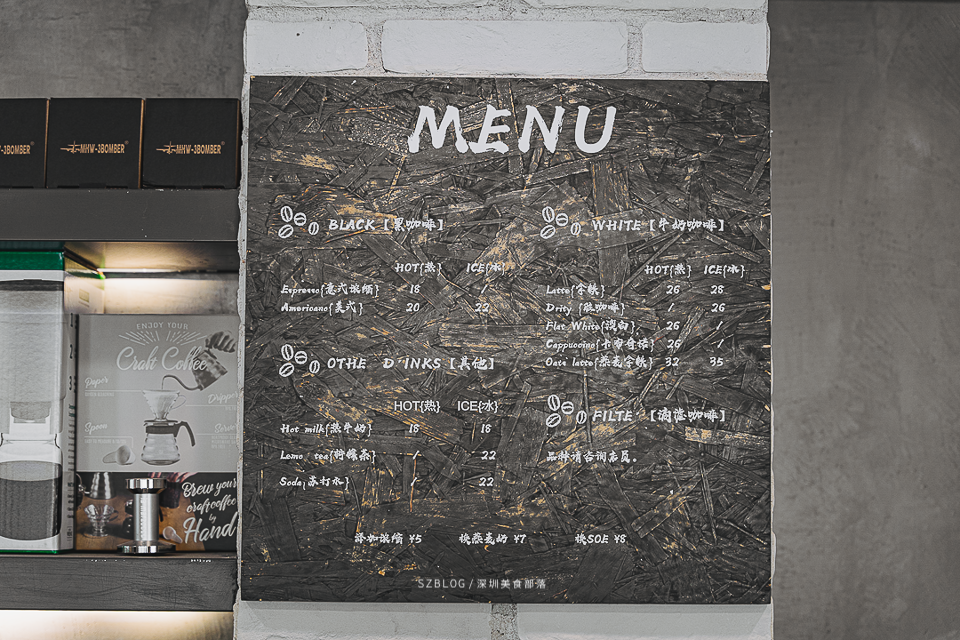 MENU
BLACK【黑咖啡】
HOT{热} ICE{冰}
Espresso{意式浓缩} 18 /
Americano{美式} 20 22
OTHE D INKS【其他】
HOT{热} ICE{冰}
Hot milk{热牛奶} 18 18
Lemo tea{柠檬茶} / 22
Soda{苏打水} / 22
WHITE【牛奶咖啡】
HOT{热} ICE{冰}
Latte{拿铁} 26 28
Drity{脏咖啡} / 26
Flat White{澳白} 26 /
Cappuccino{卡布奇诺} 26 /
Oate latte{燕麦拿铁} 32 35
FILTE 【滴滤咖啡】
品种请咨询店员。
添加浓缩 ¥5 换燕麦奶 ¥7 换SOE ¥8
SZBLOG / 深圳美食部落
W-3BOMBER
MHW-3BOMBER
MHW-3BOMBER
ENJOY YOUR
Craft Coffee
Paper
Dripper
Spoon
Brew your
craft coffee
by
Hand